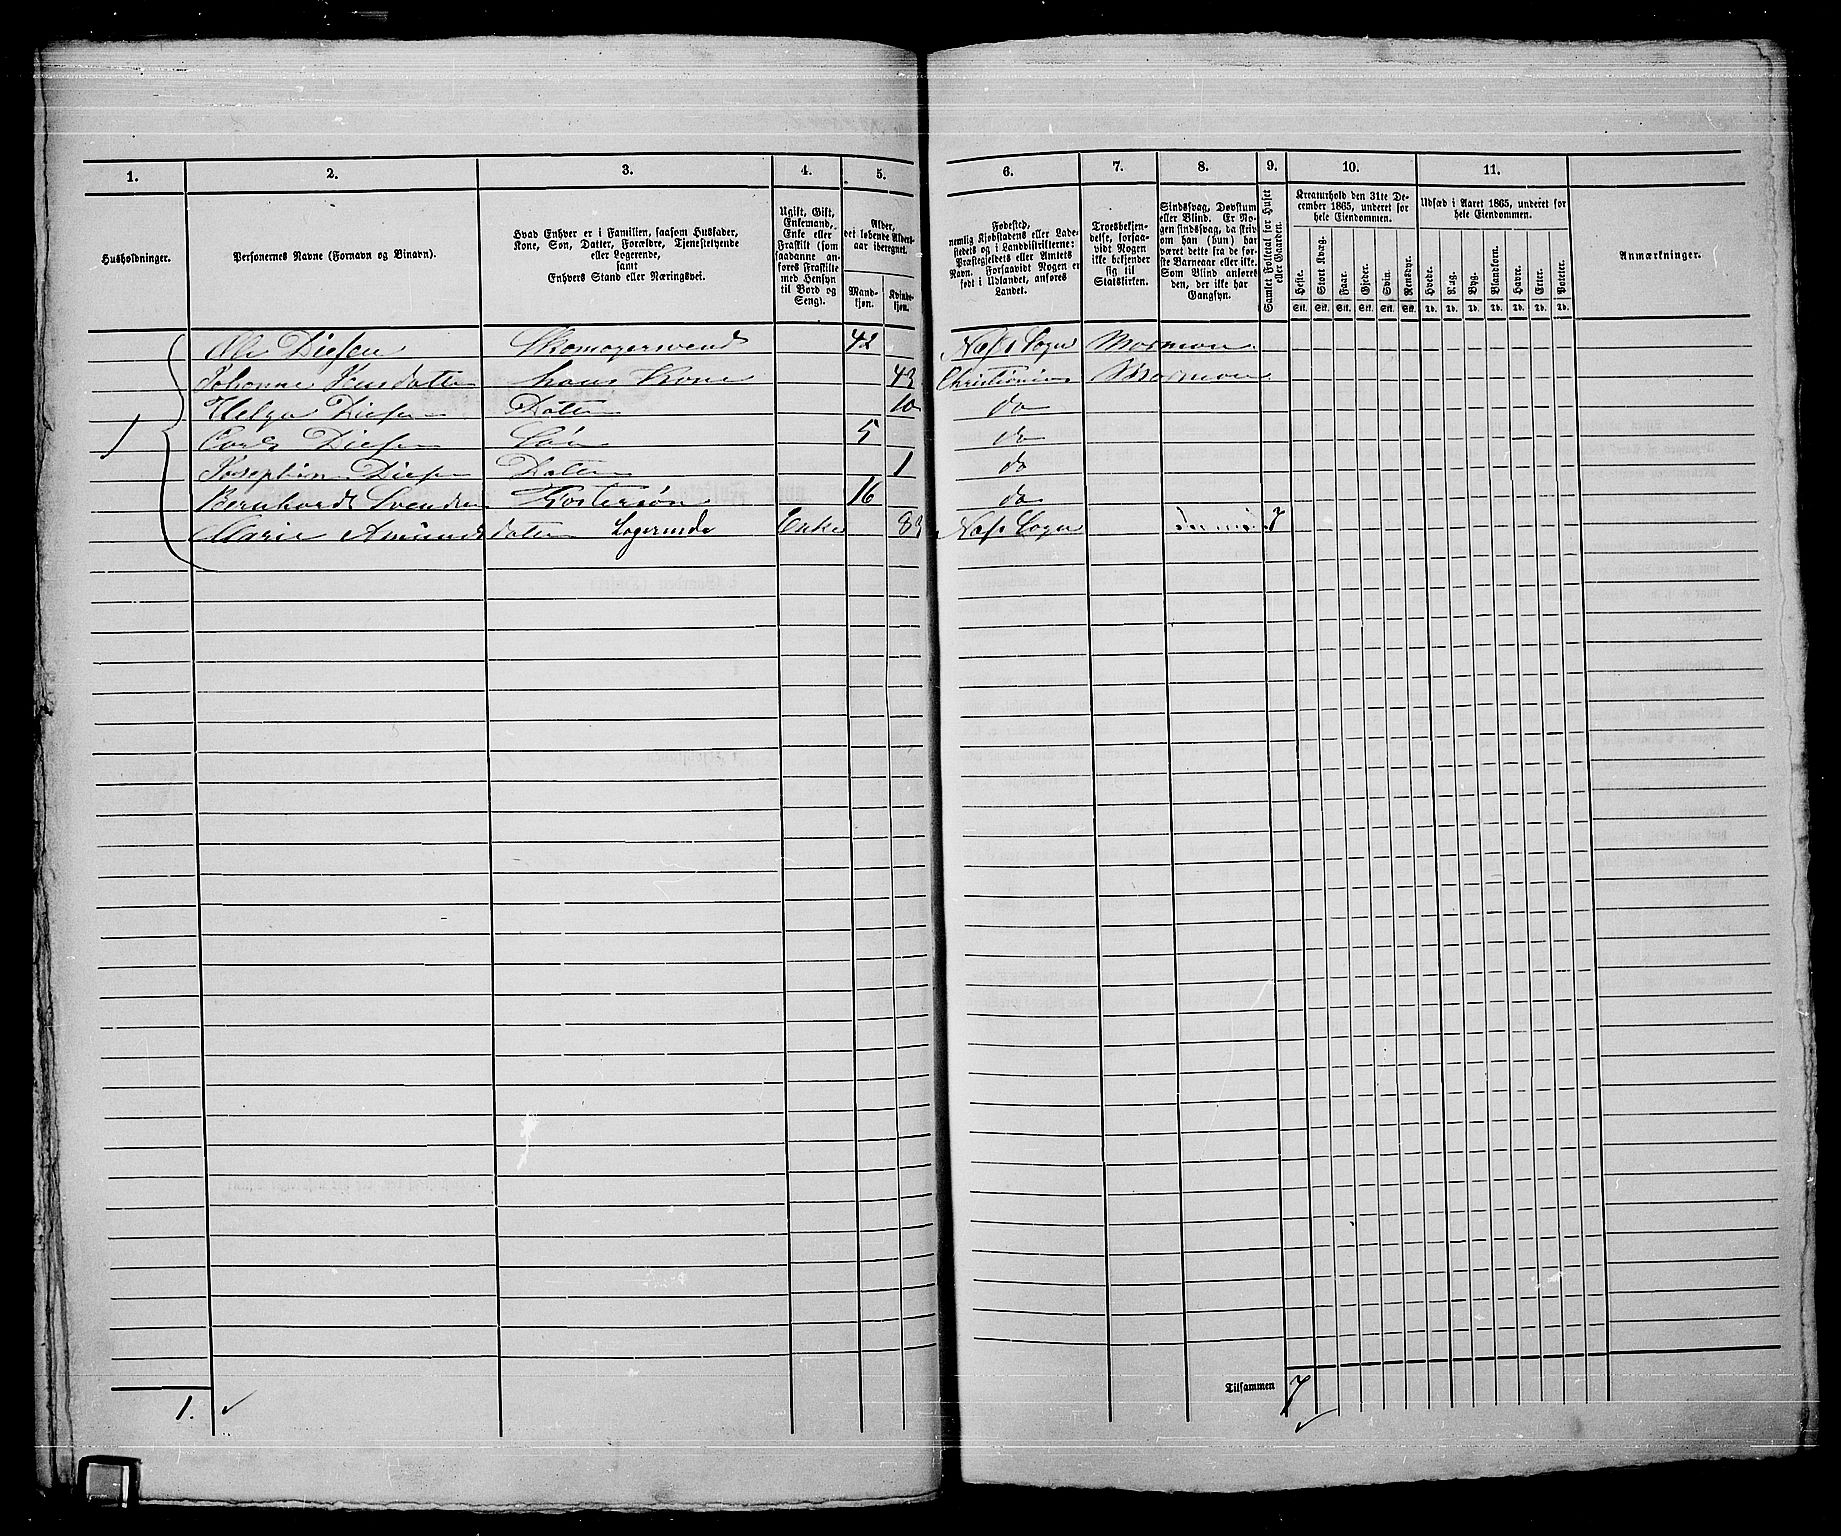 1. 2. 3. 4. 5. 6. 7. 8. 9. 10. 11.
Husholdninger.
Personernes Navne (Fornavn og Binavn).
Hvad Enhver er i Familien, saasom Husfader,
Kone, Søn, Datter, Forældre, Tjenestetyende
eller Logerende,
samt
Enhvers Stand eller Næringsvei.
Ugift, Gift,
Enkemand,
Enke eller
Fraskilt (som
saadanne an-
føres Fraskilte
med Hensyn
til Bord og
Seng).
Alder,
det løbende Alders-
aar iberegnet.
Mand-
kjøn.
Kvinde-
kjøn.
Fødested,
nemlig Kjøbstadens eller Lade-
stedets og i Landdistrikterne:
Præstegjeldets eller Amtets
Navn. Forsaavidt Nogen er
født i Udlandet, anføres
Landet.
Troesbekjen-
delse, forsaa-
vidt Nogen
ikke bekjender
sig til
Statskirken.
Sindssvag, Døvstum
eller Blind. Er No-
gen sindssvag, da skriv
om han (hun) har
været dette fra de før-
ste Barneaar eller ikke.
Som Blind anføres
den, der ikke har
Gangsyn.
Samlet Folketal for Huset
eller Gaarden.
Kreaturhold den 31te De-
cember 1865, underet for
hele Eiendommen.
Heste. Stort Kvæg. Faar. Gjeder. Svin. Rensdyr.
Stk. Stk. Stk. Stk. Stk. Stk.
Udsæd i Aaret 1865, underet for
hele Eiendommen.
Hvede. Rug. Byg. Blandkorn. Havre. Erter. Poteter.
Td. Td. Td. Td. Td. Td. Td.
Anmærkninger.
Ole Diesen Skomagersvend 42 Næss Sogn Mormon
Johanne Jensdatter hans Kone 43 Christiania Mormon
Helga Diesen Datter 10 do
1 Carl Diesen Søn 5 do
Josephine Diesen Datter 1 do
Bernhardt Svendsen Fostersøn 16 do
Marie Amunds datter Logerende Enke 83 Næss Sogn 7
1.
Tilsammen 7